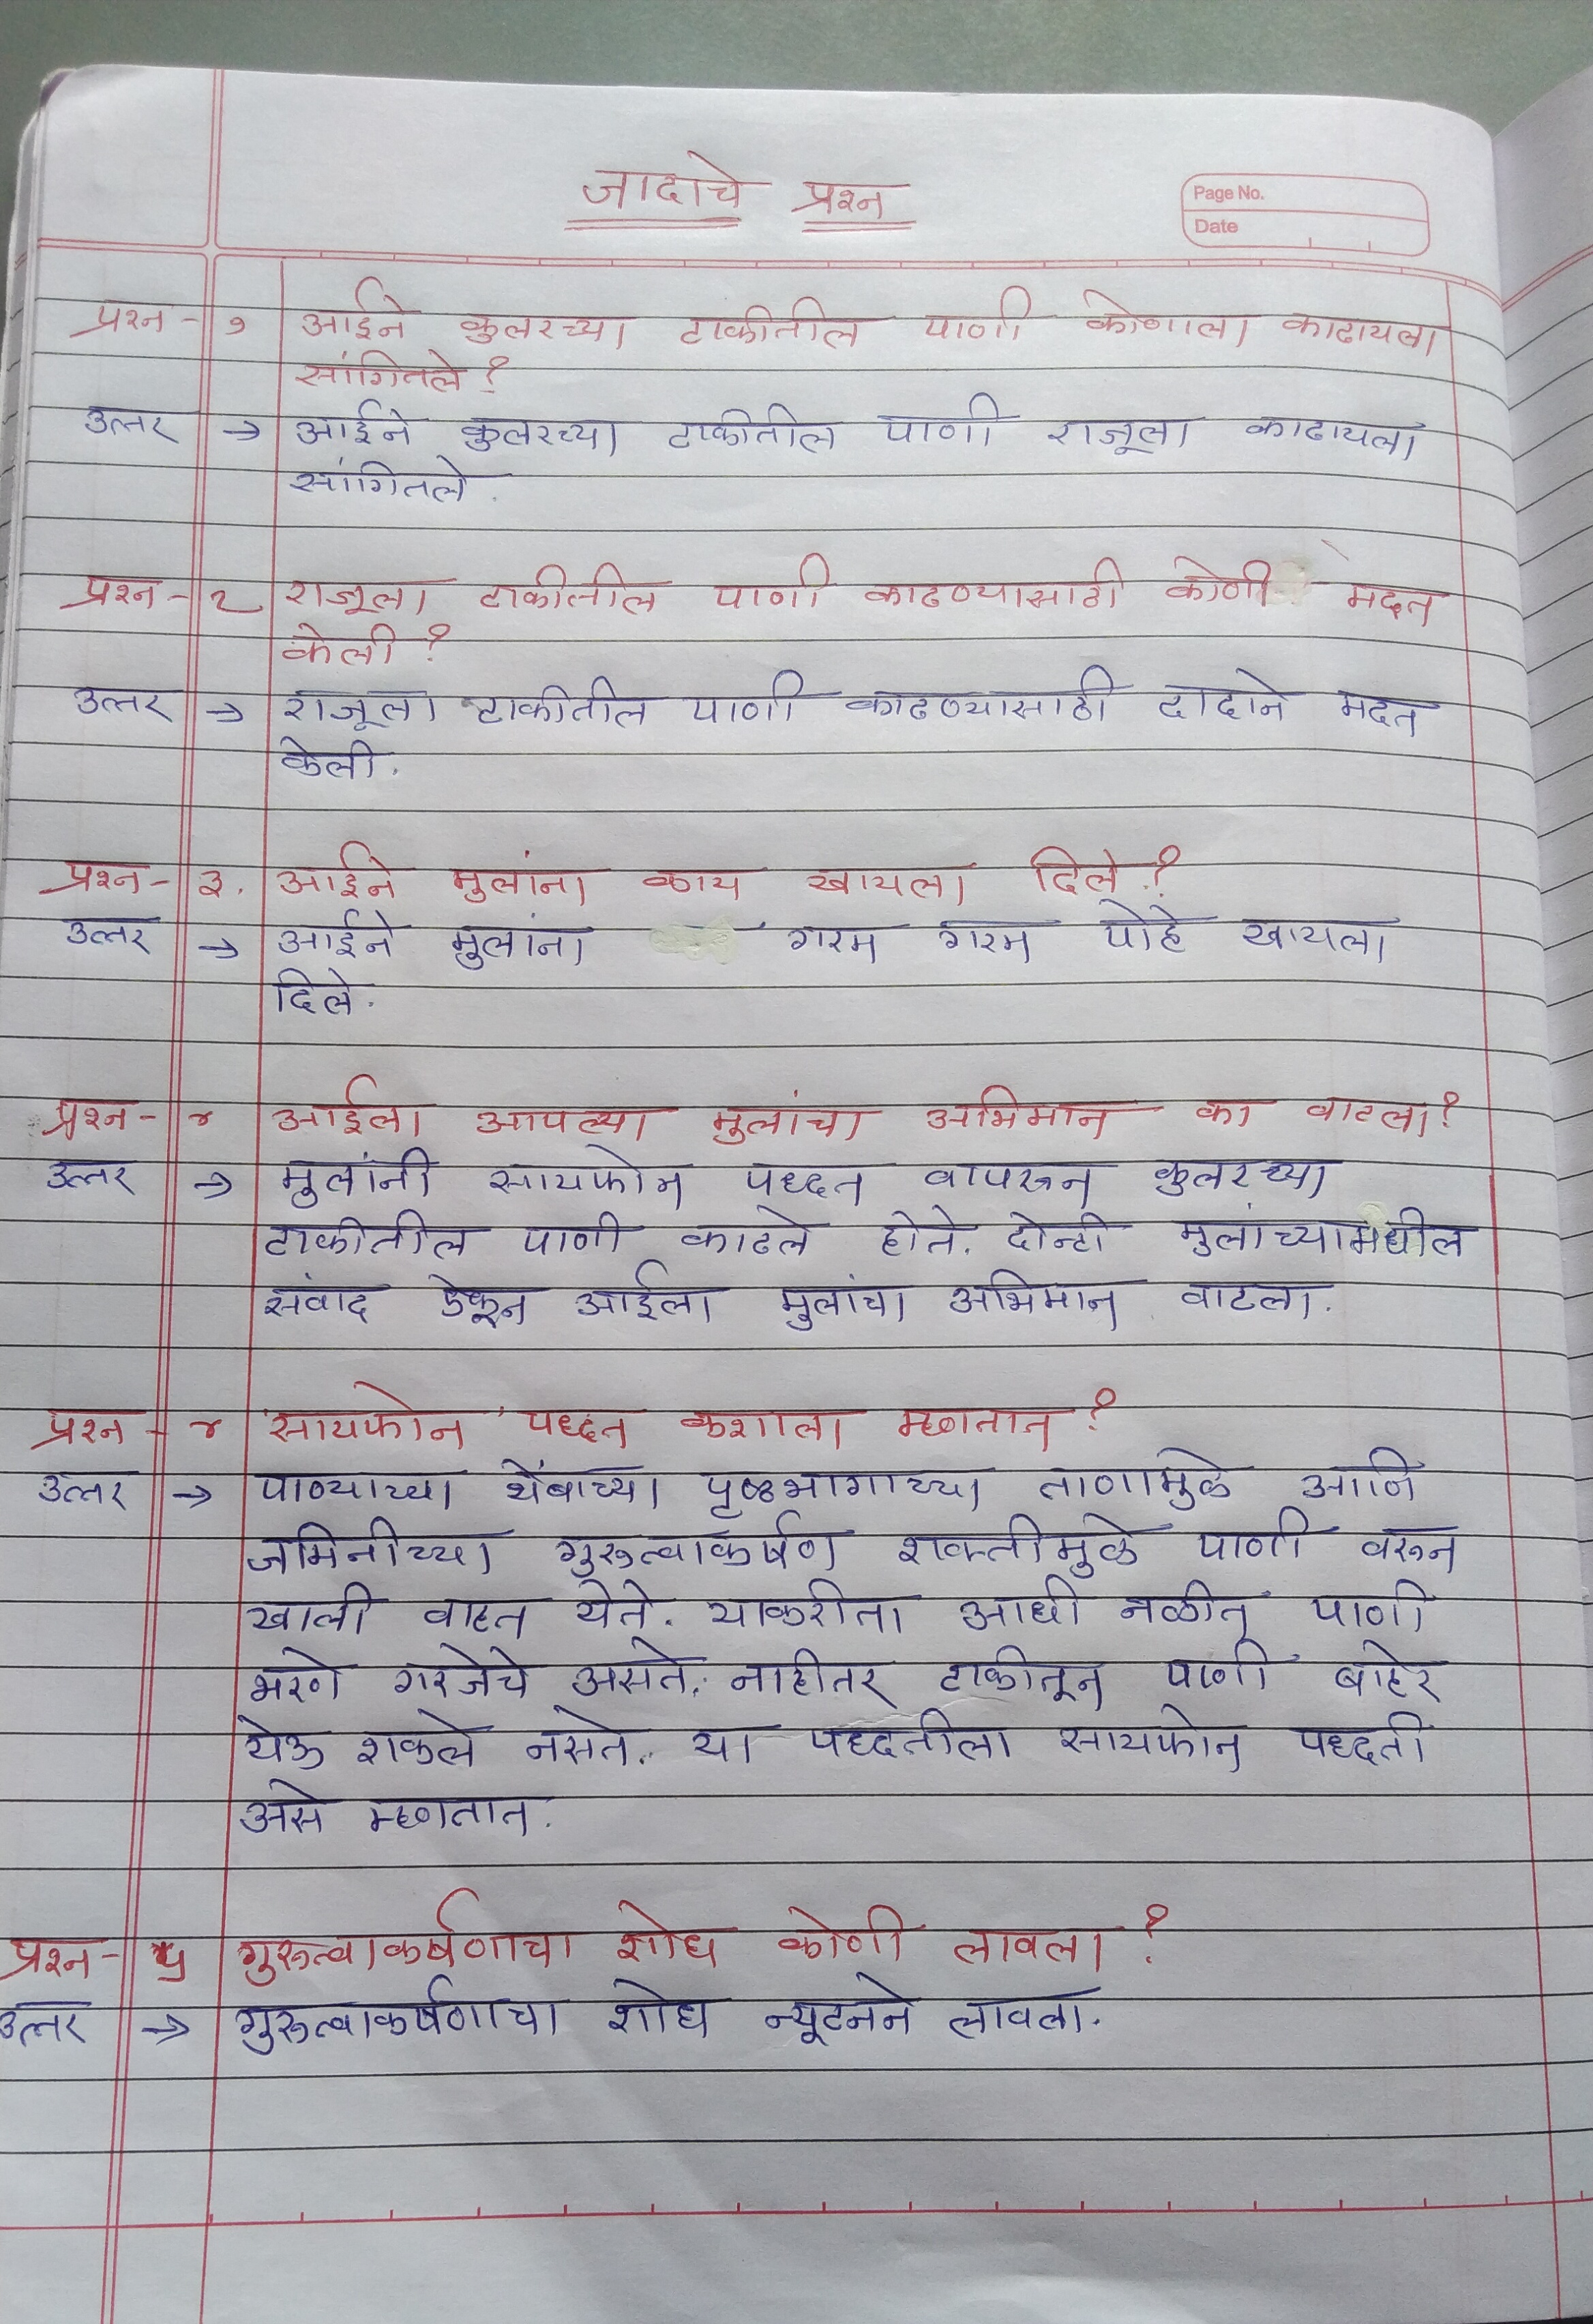 जादाचे प्रश्न
Page No.
Date
प्रश्न - १ आईने कुलरच्या टाकीतील पाणी कोणाला काढायला
सांगितले?
उत्तर → आईने कुलरच्या टाकीतील पाणी राजूला काढायला
सांगितले.
प्रश्न - २ राजूला टाकीतील पाणी काढण्यासाठी कोणी मदत
केली?
उत्तर → राजूला टाकीतील पाणी काढण्यासाठी दादाने मदत
केली.
प्रश्न - ३. आईने मुलांना काय खायला दिले?
उत्तर → आईने मुलांना गरम गरम पोहे खायला
दिले.
प्रश्न - ४ आईला आपल्या मुलांचा अभिमान का वाटला?
उत्तर → मुलांनी सायफोन पध्दत वापरून कुलरच्या
टाकीतील पाणी काढले होते. दोन्ही मुलांच्यामधील
संवाद ऐकून आईला मुलांचा अभिमान वाटला.
प्रश्न - ४ 'सायफोन' पध्दत कशाला म्हणतात?
उत्तर → पाण्याच्या थेंबाच्या पृष्ठभागाच्या ताणामुळे आणि
जमिनीच्या गुरुत्वाकर्षण शक्तीमुळे पाणी वरून
खाली वाहत येते. याकरीता आधी नळीत पाणी
भरणे गरजेचे असते. नाहीतर टाकीतून पाणी बाहेर
येऊ शकले नसते. या पध्दतीला सायफोन पध्दती
असे म्हणतात.
प्रश्न - ५ गुरुत्वाकर्षणाचा शोध कोणी लावला?
उत्तर → गुरुत्वाकर्षणाचा शोध न्यूटनने लावला.